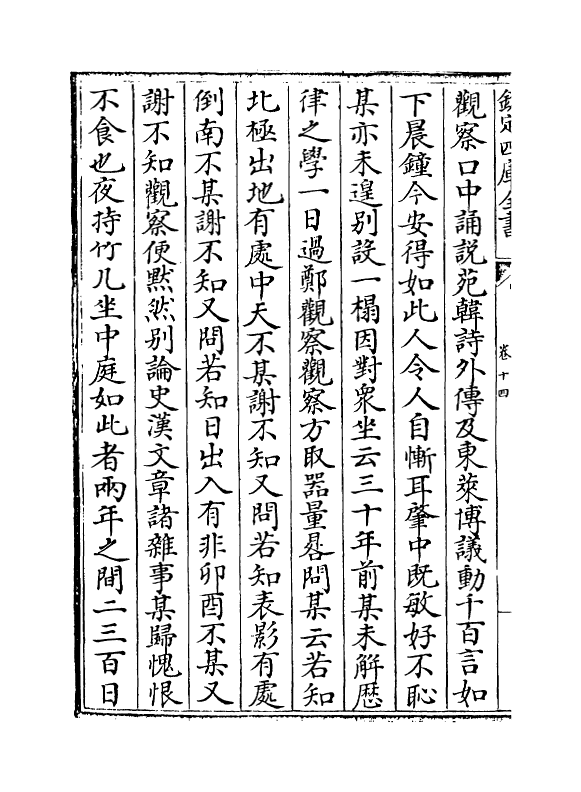 欽定四庫全書
卷十四
觀察口中誦説苑韓詩外傳及東萊博議動千百言如
下晨鐘今安得如此人令人自慚耳肇中既敏好不恥
某亦未遑別設一榻因對衆坐云三十年前某未解歴
律之學一日過鄭觀察觀察方取器量晷問某云若知
北極出地有處中天不某謝不知又問若知表影有處
倒南不某謝不知又問若知日出入有非卯酉不某又
謝不知觀察便黙然別論史漢文章諸雜事某歸愧恨
不食也夜持竹几坐中庭如此者兩年之間二三百日